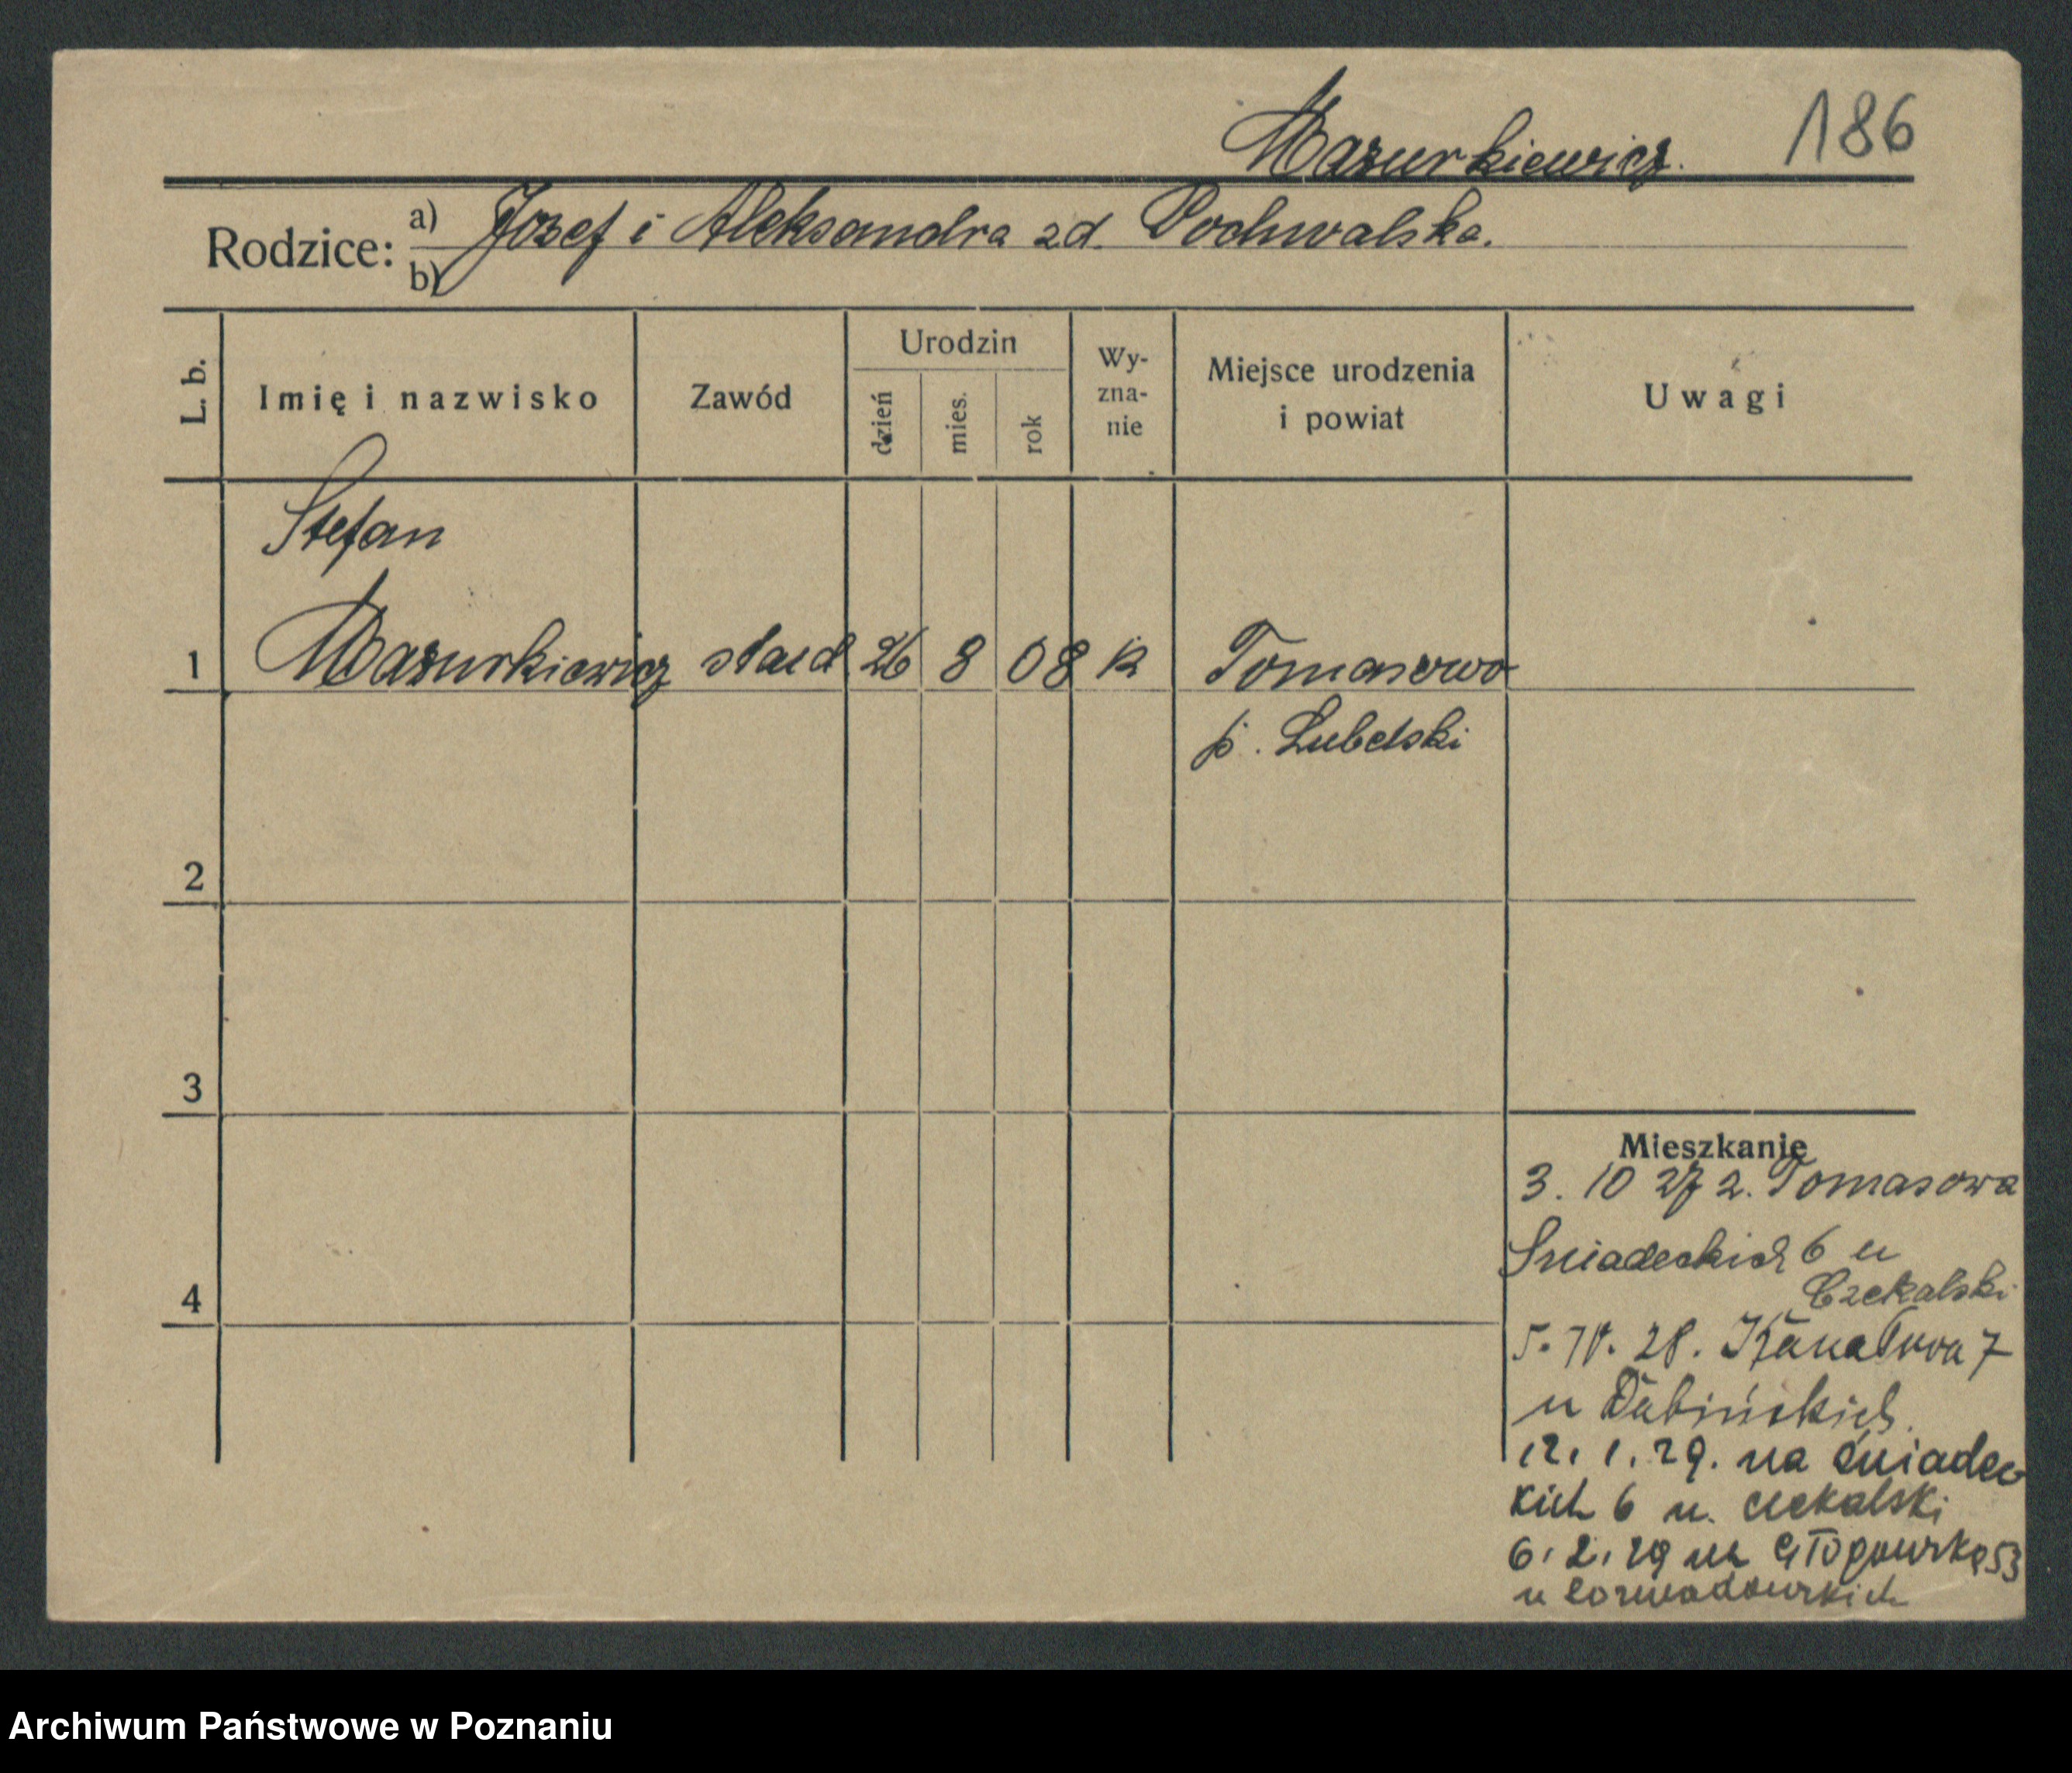 Mazurkiewicz. 186
Rodzice: a) Józef i Aleksandra zd. Pochwalska.
b)
L. b. Imię i nazwisko Zawód Urodzin dzień mies. rok Wy-zna-nie Miejsce urodzenia i powiat Uwagi
Stefan
1 Mazurkiewicz stud 26 8 08 k Tomaszowo
p. Lubelski
2
3
Mieszkanie
3. 10 27 z. Tomasowa
Sniadeckich 6 u
4 Czekalski
5. IV. 28. Kanałowa 7
u Dubińskich.
12. 1. 29. na Śniadec
kich 6 u. Czekalski
6. 2. 29 na Głogowską 53
u
Archiwum Państwowe w Poznaniu